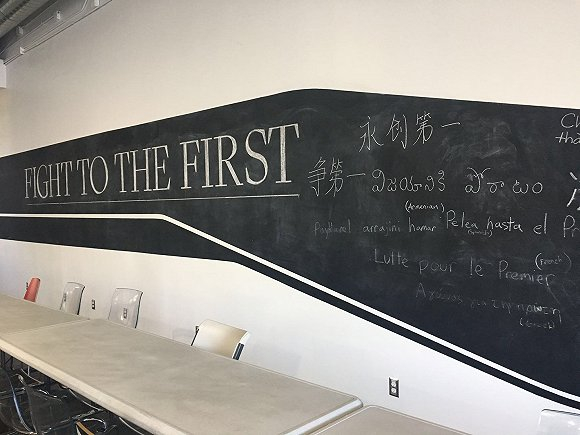 FIGHT TO THE FIRST
永创第一
争第一
విజయానికి పోరాటం
(Armenian)
Paykarel arrajini hamar
Pelea hasta el
Lutte pour le Premier
(French)
Αγώνας για την πρώτη
(Greek)